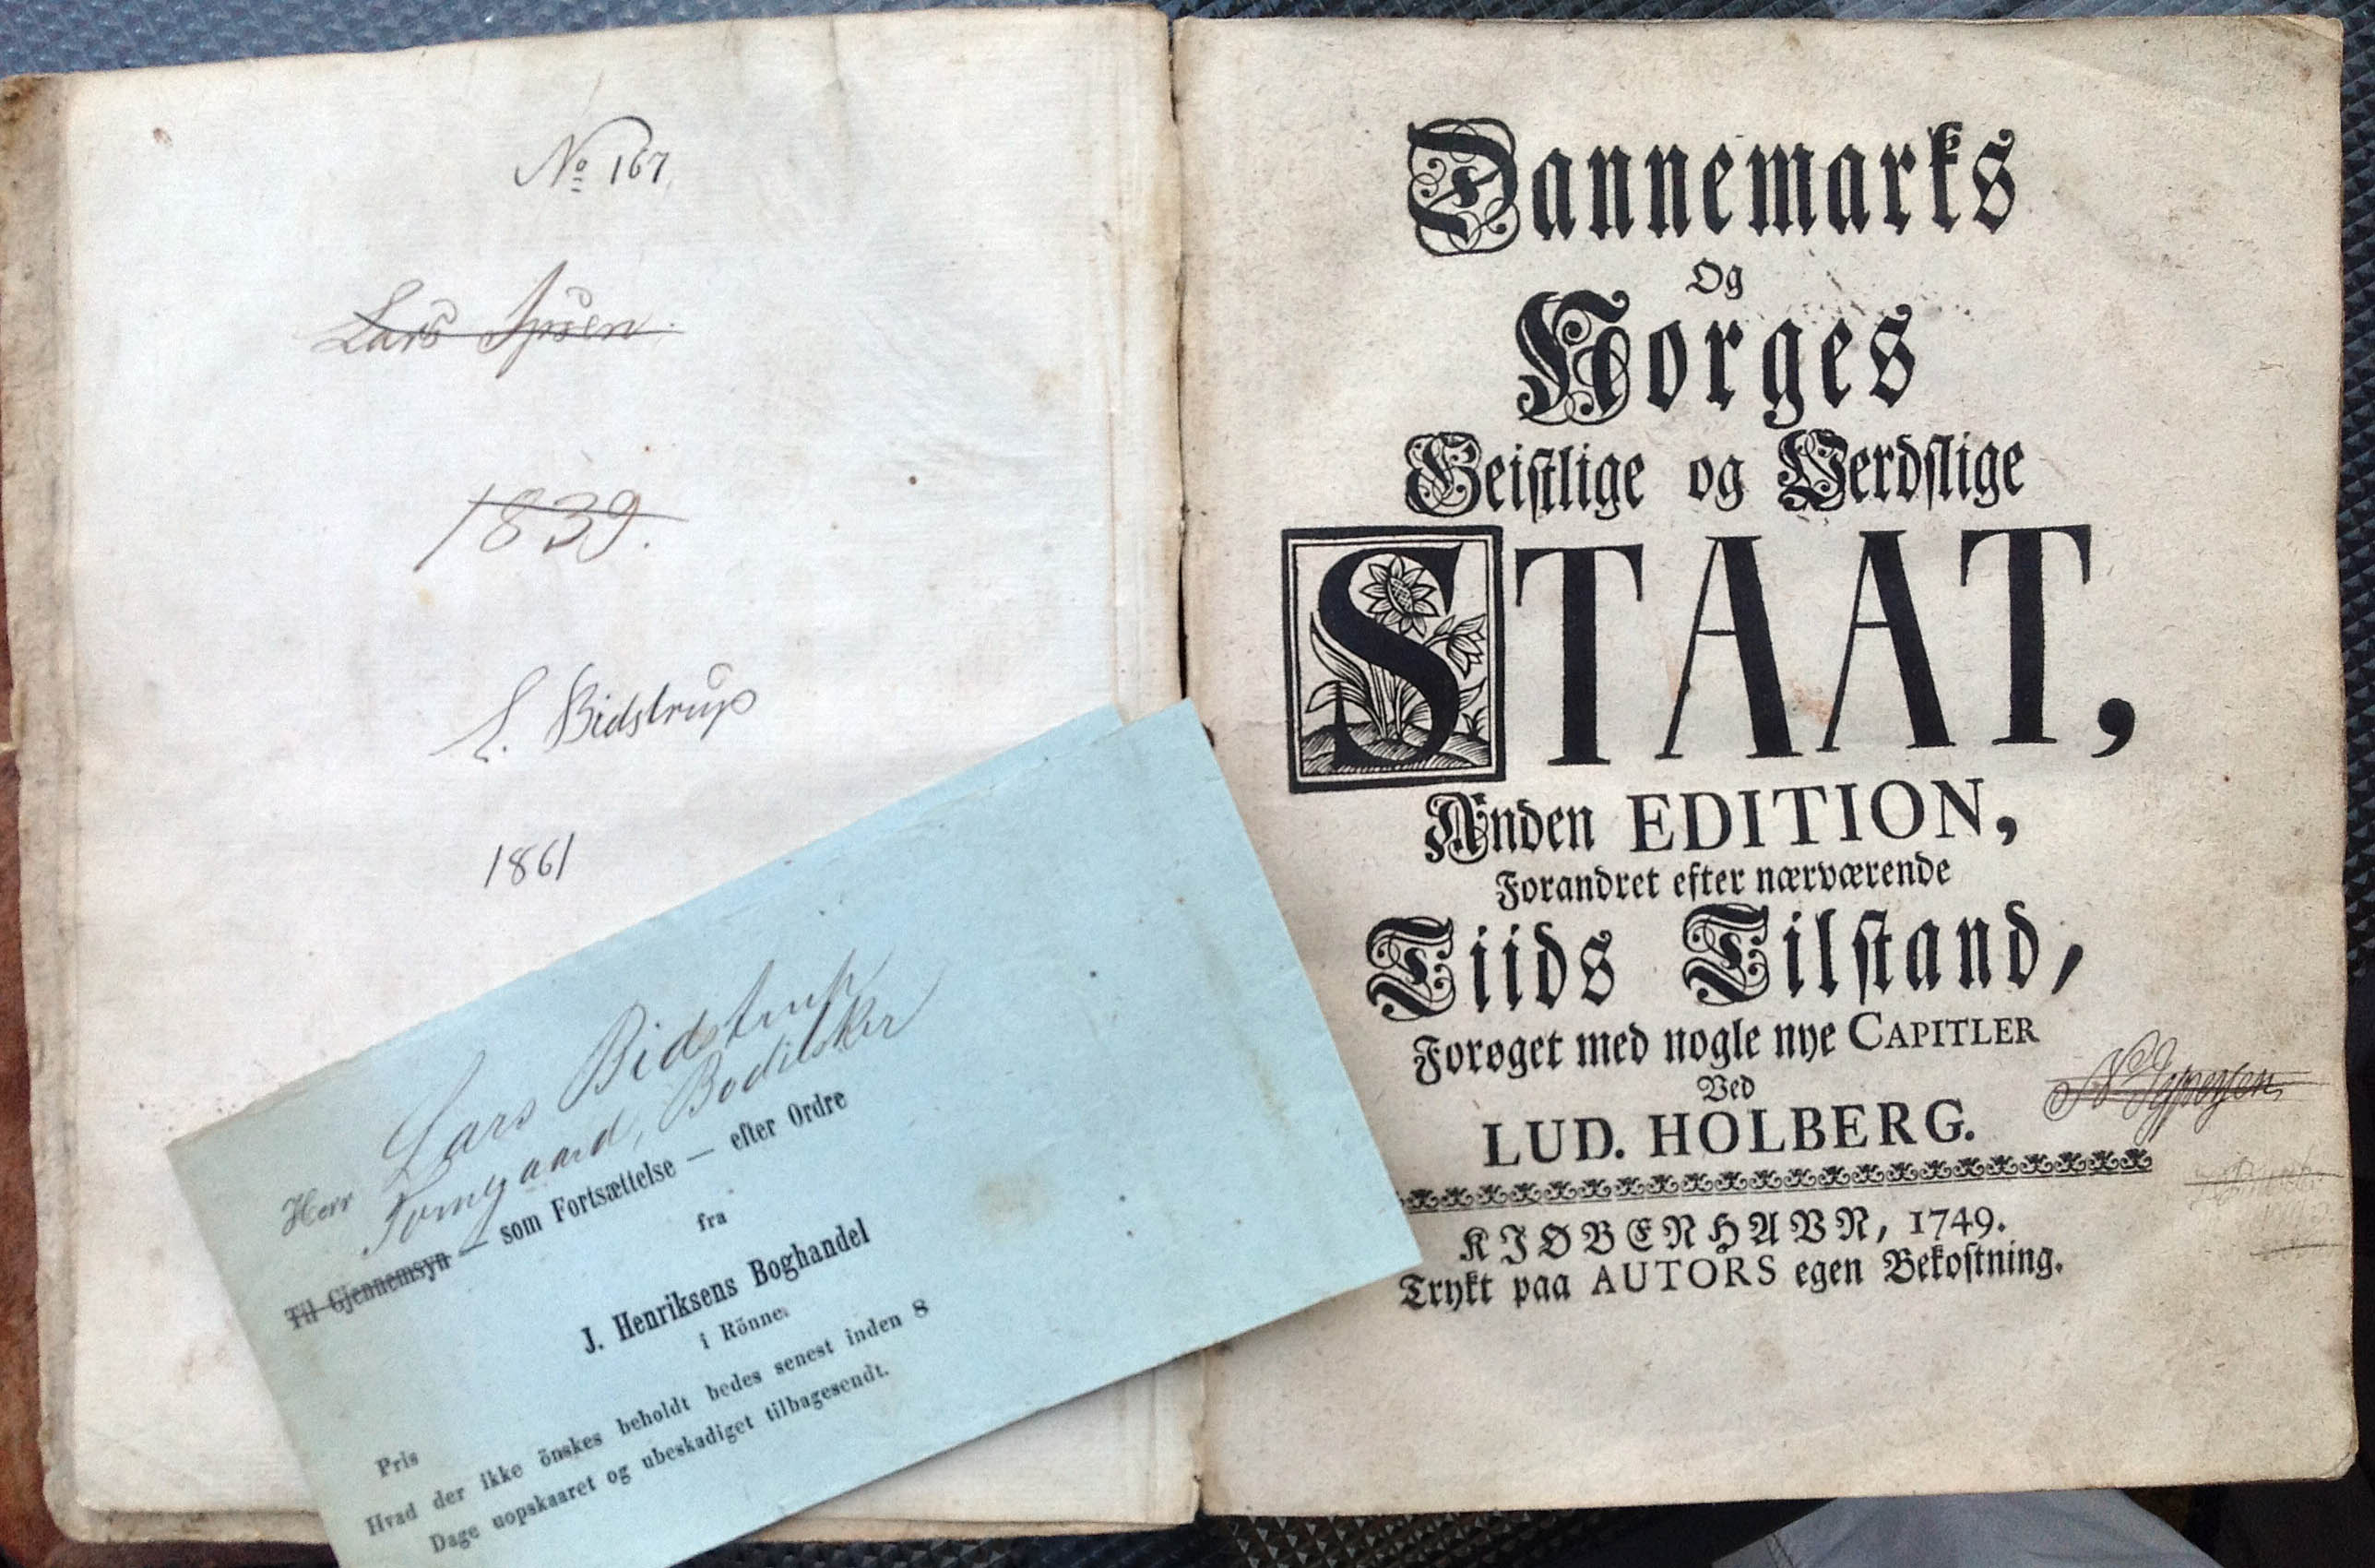 No 167.
Lars Ipsen.
1839.
L. Bidstrup
1861
Herr Lars Bidstrup
Tomgaard, Bodilsker
Til Gjennemsyn — som Fortsættelse — efter Ordre
fra
J. Henriksens Boghandel
i Rönne.
Pris
Hvad der ikke önskes beholdt bedes senest inden 8
Dage uopskaaret og ubeskadiget tilbagesendt.
Dannemarks
Og
Norges
Geistlige og Verdslige
STAAT,
Anden EDITION,
Forandret efter nærværende
Tiids Tilstand,
Forøget med nogle nye CAPITLER
Ved
LUD. HOLBERG.
KIØBENHAVN, 1749.
Trykt paa AUTORS egen Bekostning.